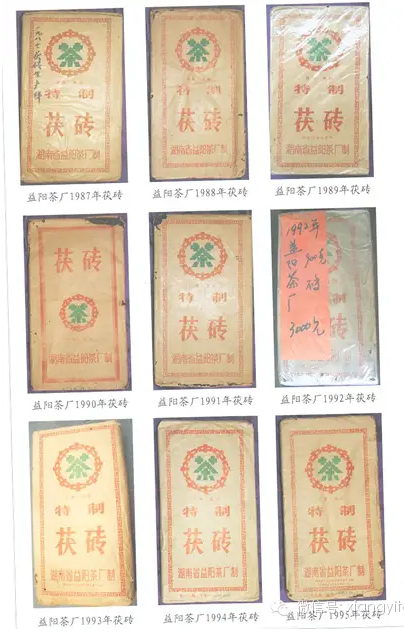 一九八七茯砖生产样
茶
特制
茯砖
湖南省益阳茶厂制
茶
特制
茯砖
湖南省益阳茶厂制
茶
特制
茯砖
湖南省益阳茶厂制
益阳茶厂1987年茯砖
益阳茶厂1988年茯砖
益阳茶厂1989年茯砖
茯砖
茶
湖南省益阳茶厂制
茶
特制
茯砖
湖南省益阳茶厂制
1992年
益阳茶厂
砖
3000元
益阳茶厂1990年茯砖
益阳茶厂1991年茯砖
益阳茶厂1992年茯砖
茶
特制
茯砖
湖南省益阳茶厂制
茶
特制
茯砖
湖南省益阳茶厂制
茶
特制
茯砖
湖南省益阳茶厂制
益阳茶厂1993年茯砖
益阳茶厂1994年茯砖
益阳茶厂1995年茯砖
微信号: xiangyife